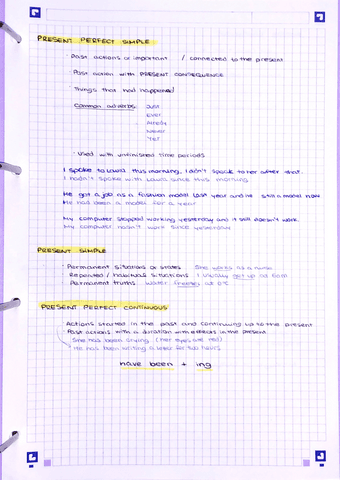 PRESENT PERFECT SIMPLE
· Past actions of important / connected to the present
· Past action with PRESENT CONSEQUENCE
· Things that had happened
Common adverbs: Just
Ever
Already
Never
Yet
· Used with unfinished time periods
I spoke to Laura this morning, I didn't speak to her after that.
I hadn't spoke with Laura since this morning
He got a job as a fashion model last year and he still a model now
He had been a model for a year
My computer stopped working yesterday and it still doesn't work
My computer hasn't work since yesterday
PRESENT SIMPLE
· Permanent situations or states She works as a nurse
· Repeated / habitual situations I usually get up at 6am
· Permanent truths Water freezes at 0º
PRESENT PERFECT CONTINUOUS
· Actions started in the past and continuing up to the present
· Past actions with a duration with effects in the present
She has been crying (her eyes are red)
He has been writing a letter for two hours
have been + ing